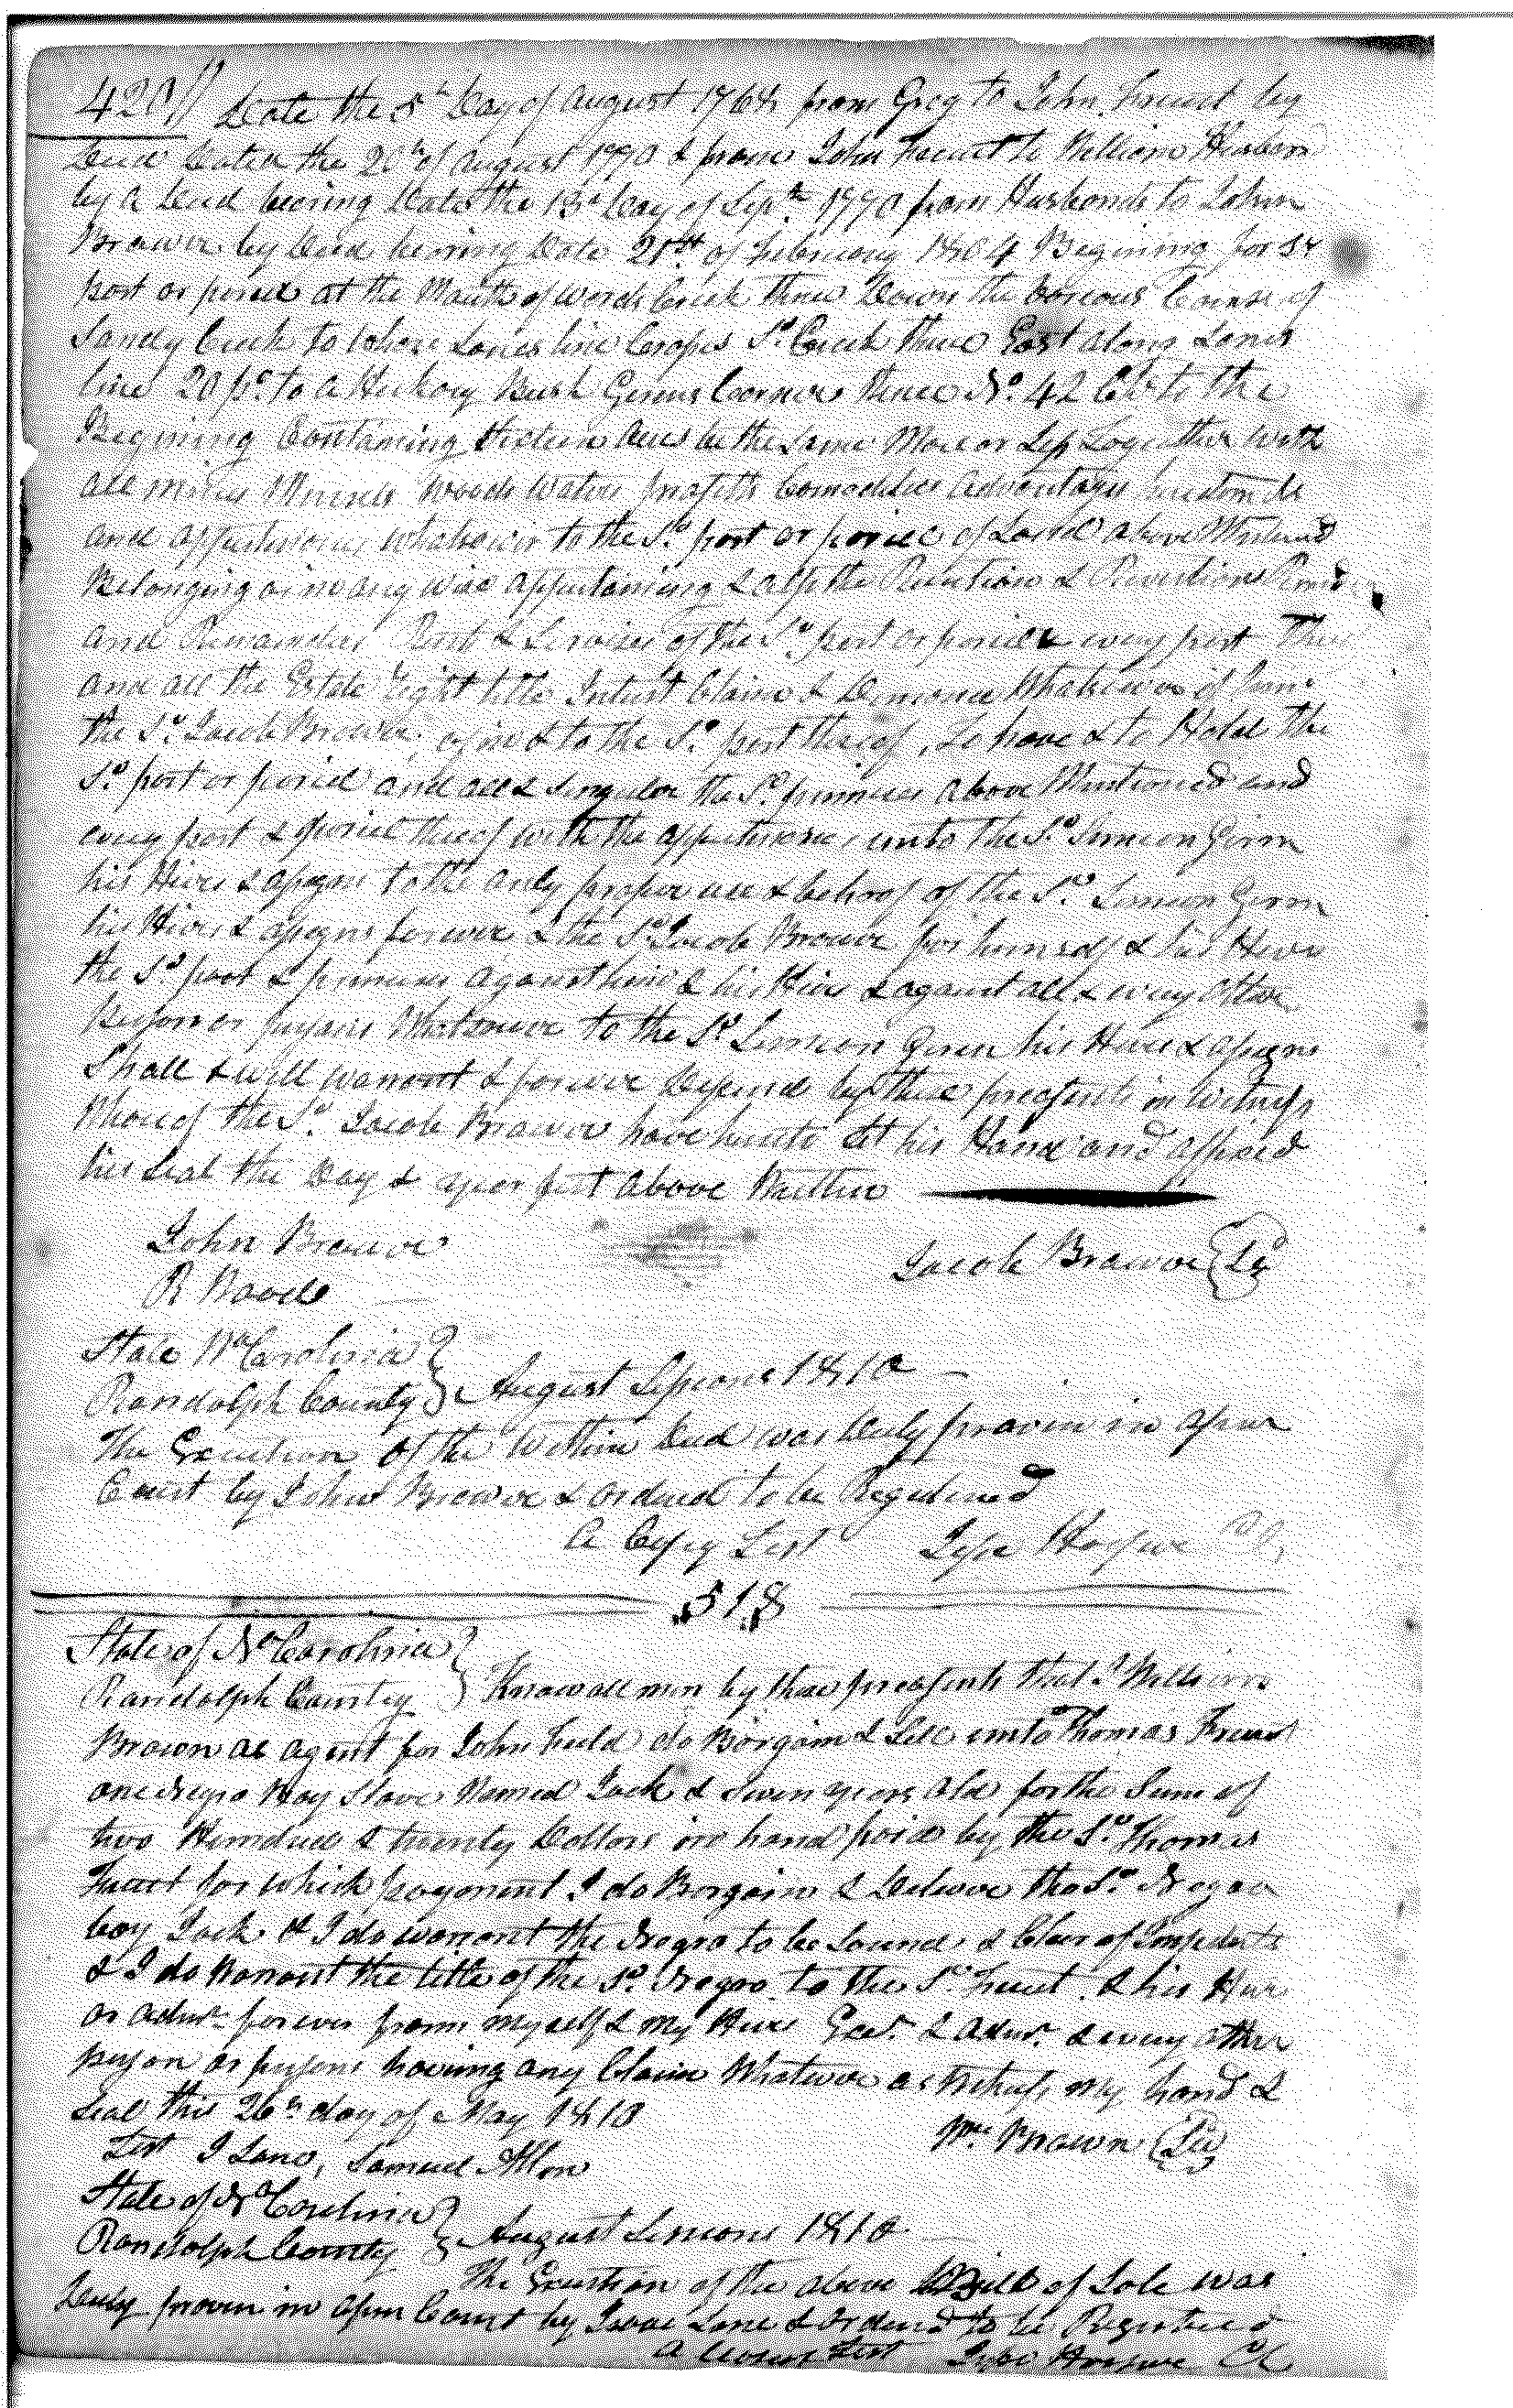 420
Date the 5th Day of August 1764 from Greg to John Fruit by
Deed Dated the 20th of August 1790 & from John Fruit to William Husbans
by a Deed bearing Date the 13d Day of Sept 1790 from Husbands to John
Brower by Deed bearing Date 21st of February 1804 Begining for sd
part or parcel at the Mouth of Creek thence Down the Various Courses of
Sandy Creek to where Lanes line Crosses Sd Creek thence East along Lanes
line 20 po to a Hickory Bush Corner thence No 42 Ch to the
Begining Containing Sixteen acres be the same More or Less Together with
all mines Minerals Woods Waters profitts Comodities Advantages
and appurtinances whatsoever to the Sd part or parcel of Land above Mentiond
Belonging or in any wise appertaining & also the Revertion & Revertions
and Remainders Rents & Services of the Sd part or parcel & every part
and all the Estate Right title Intrist Claim & Demand Whatsoever of him
the Sd Jacob Brower of in & to the Sd part thereof, To have & to Hold the
Sd part or parcel and all & Singular the Sd premises above Mentioned and
every part & parcel thereof with the appurtenances unto the Sd Simeon
his Heirs & assigns to the only proper use & behoof of the Sd Simeon
his Heirs & assigns forever & the Sd Jacob Brower for himself & his Heirs
the Sd part & premises against him & his Heirs & against all & every other
Person or persons Whatsoever to the Sd Simeon his Heirs & assigns
Shall & will warrant & forever Defend by these presents in witness
Whereof the Sd Jacob Brower have hereunto set his Hand and affixed
his Seal the Day & year first above Written
John Brower
Jacob Brower
R Wood
State No Carolina
Randolph County August Sessions 1810
The Execution of the within Deed was Duly proven in open
Court by John Brower & ordered to be Registered
A Copy Test Jesse Harper
518
State of No Carolina
Randolph County Know all men by these presents that I William
Brown as agent for John Field do Bargain & Sell unto Thomas
one Negro Boy Slave Named Jack & Seven years old for the Sum of
two Hundred & twenty Dollars in hand paid by the Sd Thomas
for which payment I do Bargain & Deliver the Sd Negro
boy Jack & I do warrant the Negro to be Sound & Clear of
& I do Warrant the title of the Sd Negro to the Sd & his Heirs
or admr forever from myself & My Heirs Exer & admr & every other
person or persons having any Claim Whatever as Witness my hand &
Seal this 26th day of May 1810
Wm Brown
Test I Lane, Samuel
State of No Carolina
Randolph County August Sessions 1810
The Execution of the above Bill of Sale was
Duly proven in open Court by Isaac Lane & ordered to be Registered
A Test Jesse Harper Ck